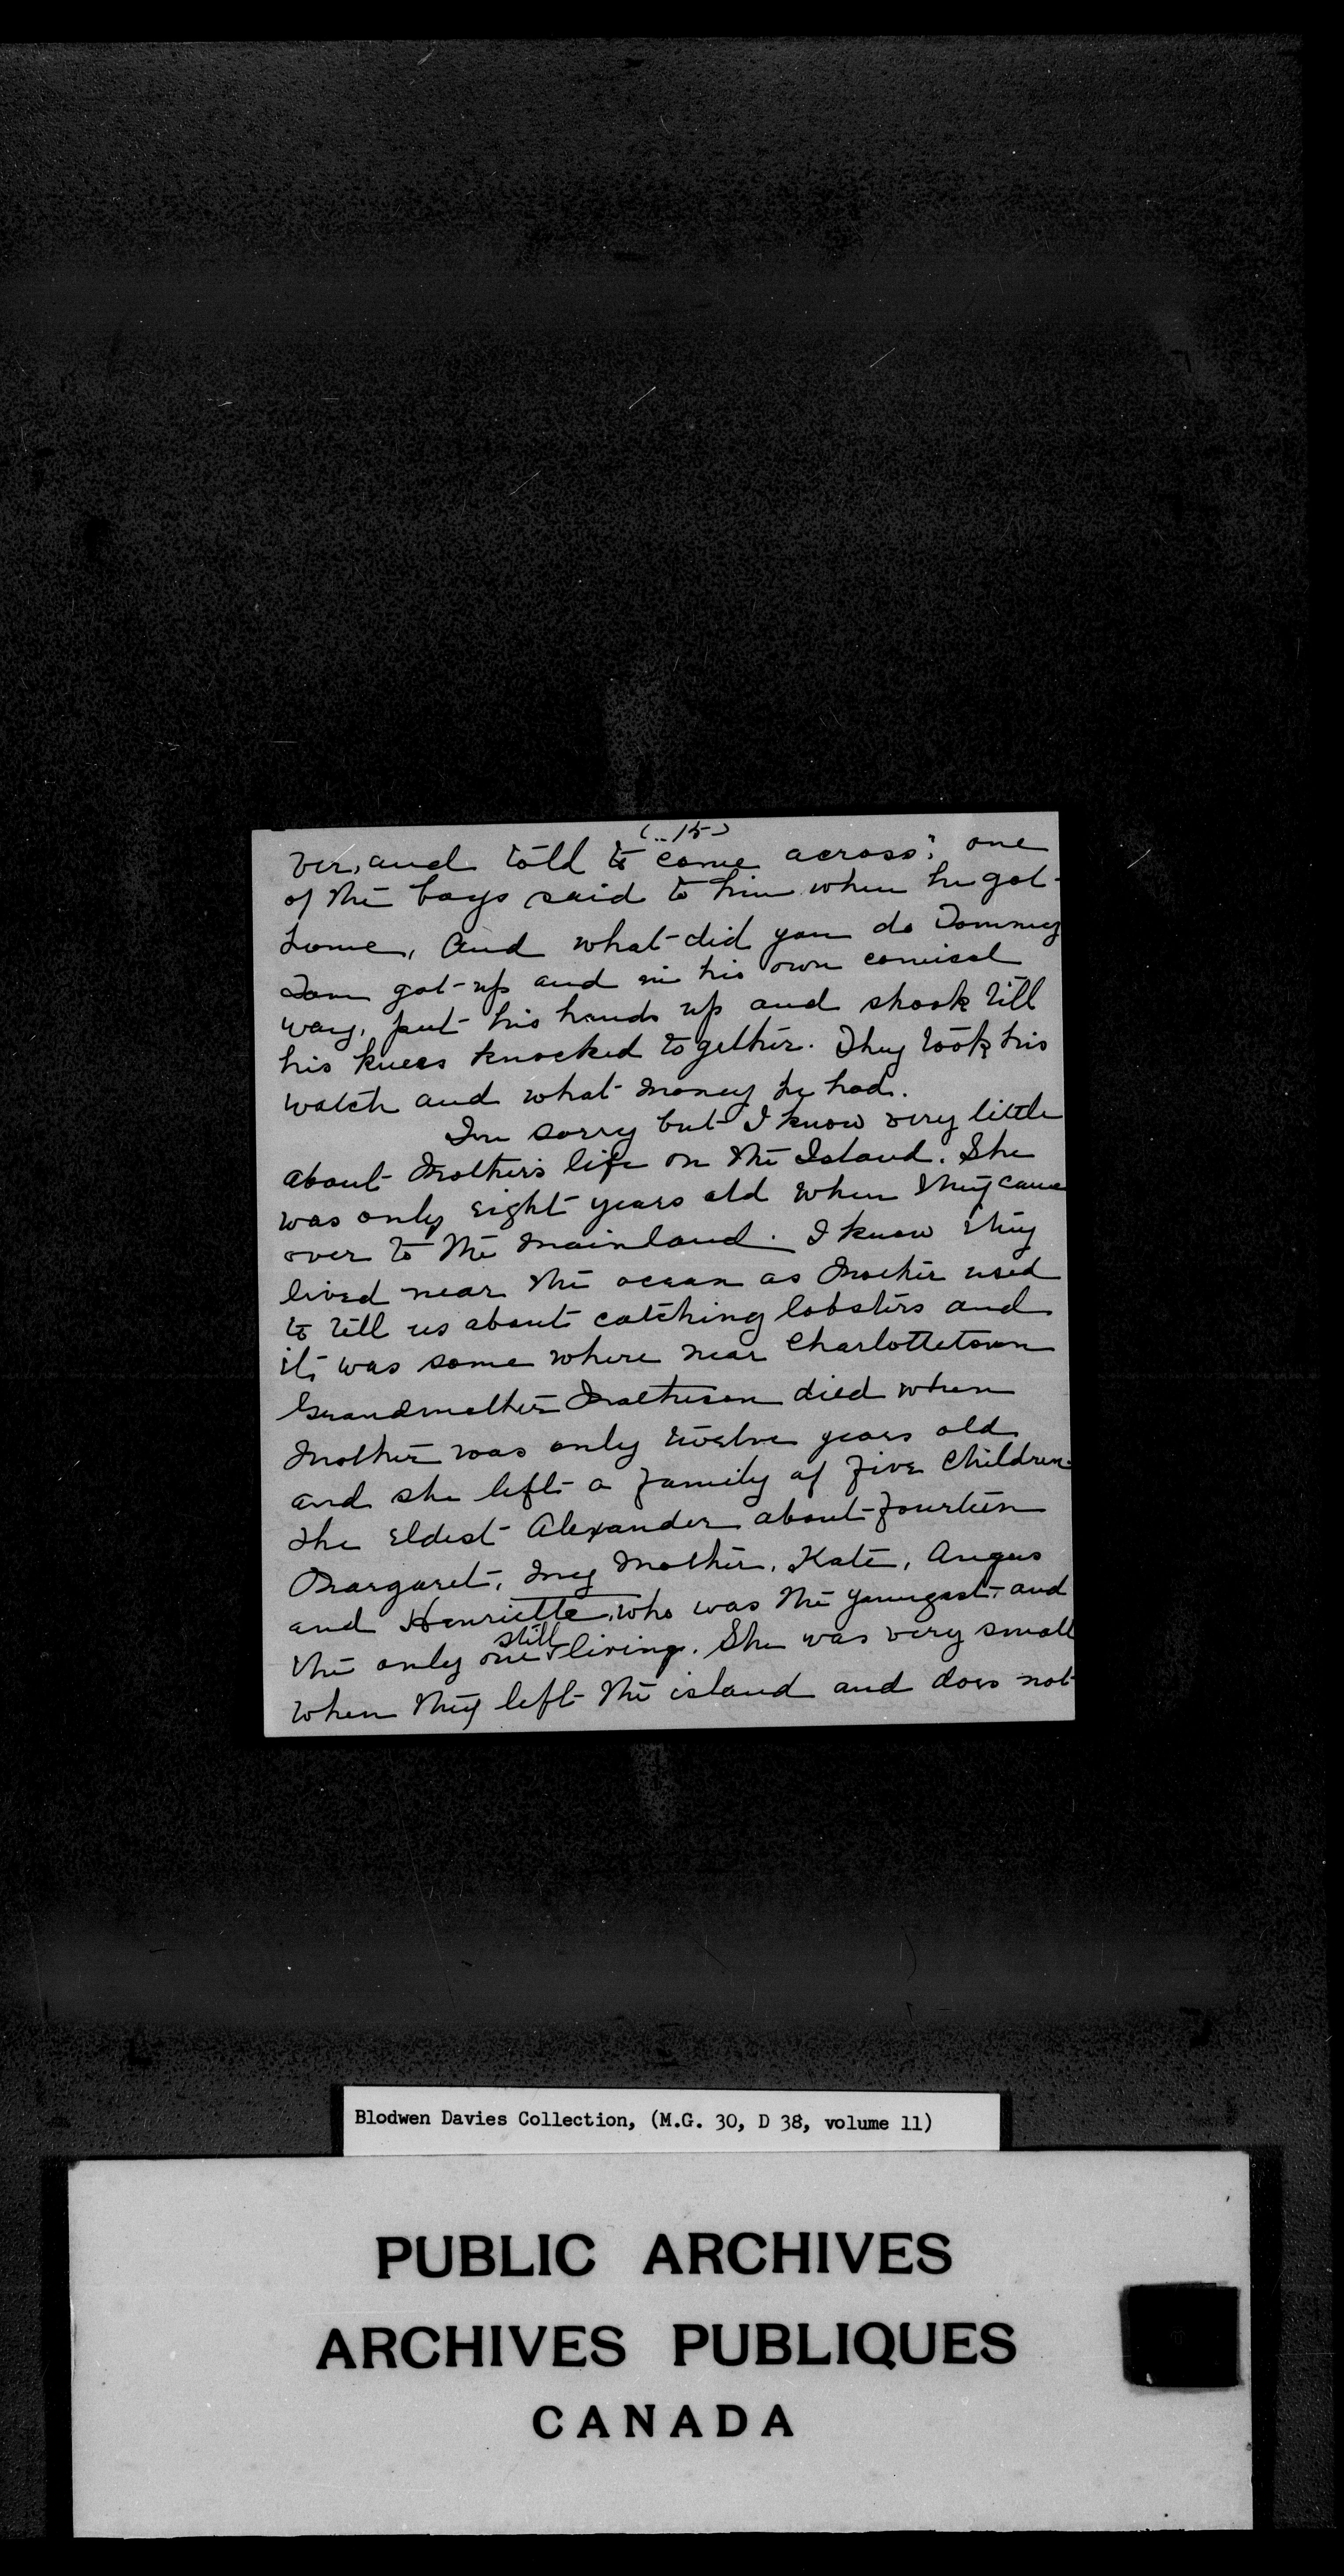 (..15)
ver, and told to come across; one
of the boys said to him when he got
home, And what did you do Tommy
Tom got up and in his own comical
way, put his hands up and shook till
his knees knocked together. They took his
watch and what money he had.
Im sorry but I know very little
about Mother's life on the Island. She
was only eight years old when they came
over to the mainland. I know they
lived near the ocean as Mother used
to tell us about catching lobsters and
it was some where near Charlottetown
Grandmother Matheson died when
Mother was only twelve years old
and she left a family of five children.
The eldest Alexander about fourteen
Margaret, my Mother, Kate, Angus
and Henriette, who was the youngest, and
the only one still living. She was very small
when they left the island and does not
Blodwen Davies Collection, (M.G. 30, D 38, volume 11)
PUBLIC ARCHIVES
ARCHIVES PUBLIQUES
CANADA